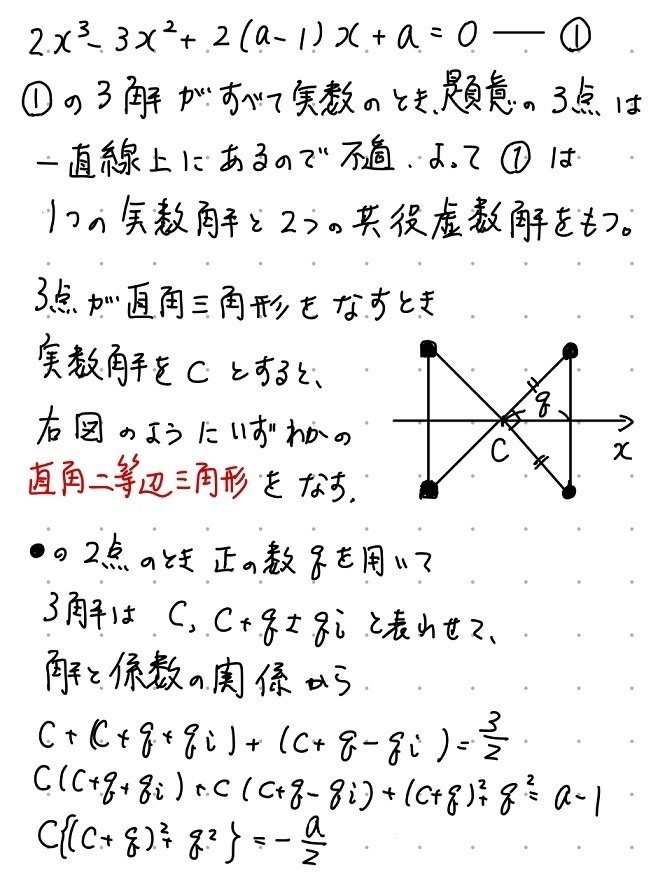 2x³-3x²+2(a-1)x+a=0 ― ①
①の3解がすべて実数のとき、題意の3点は
一直線上にあるので不適.よって①は
1つの実数解と2つの共役虚数解をもつ。
3点が直角三角形をなすとき
実数解をCとすると、
右図のようにいずれかの
直角二等辺三角形をなす.
q
C
x
●の2点のとき正の数qを用いて
3解は C, C+q±qi と表わせて、
解と係数の実係から
C+(C+q+qi)+(C+q-qi)=3/2
C(C+q+qi)+C(C+q-qi)+(C+q)²+q²=a-1
C{(C+q)²+q²}=-a/2